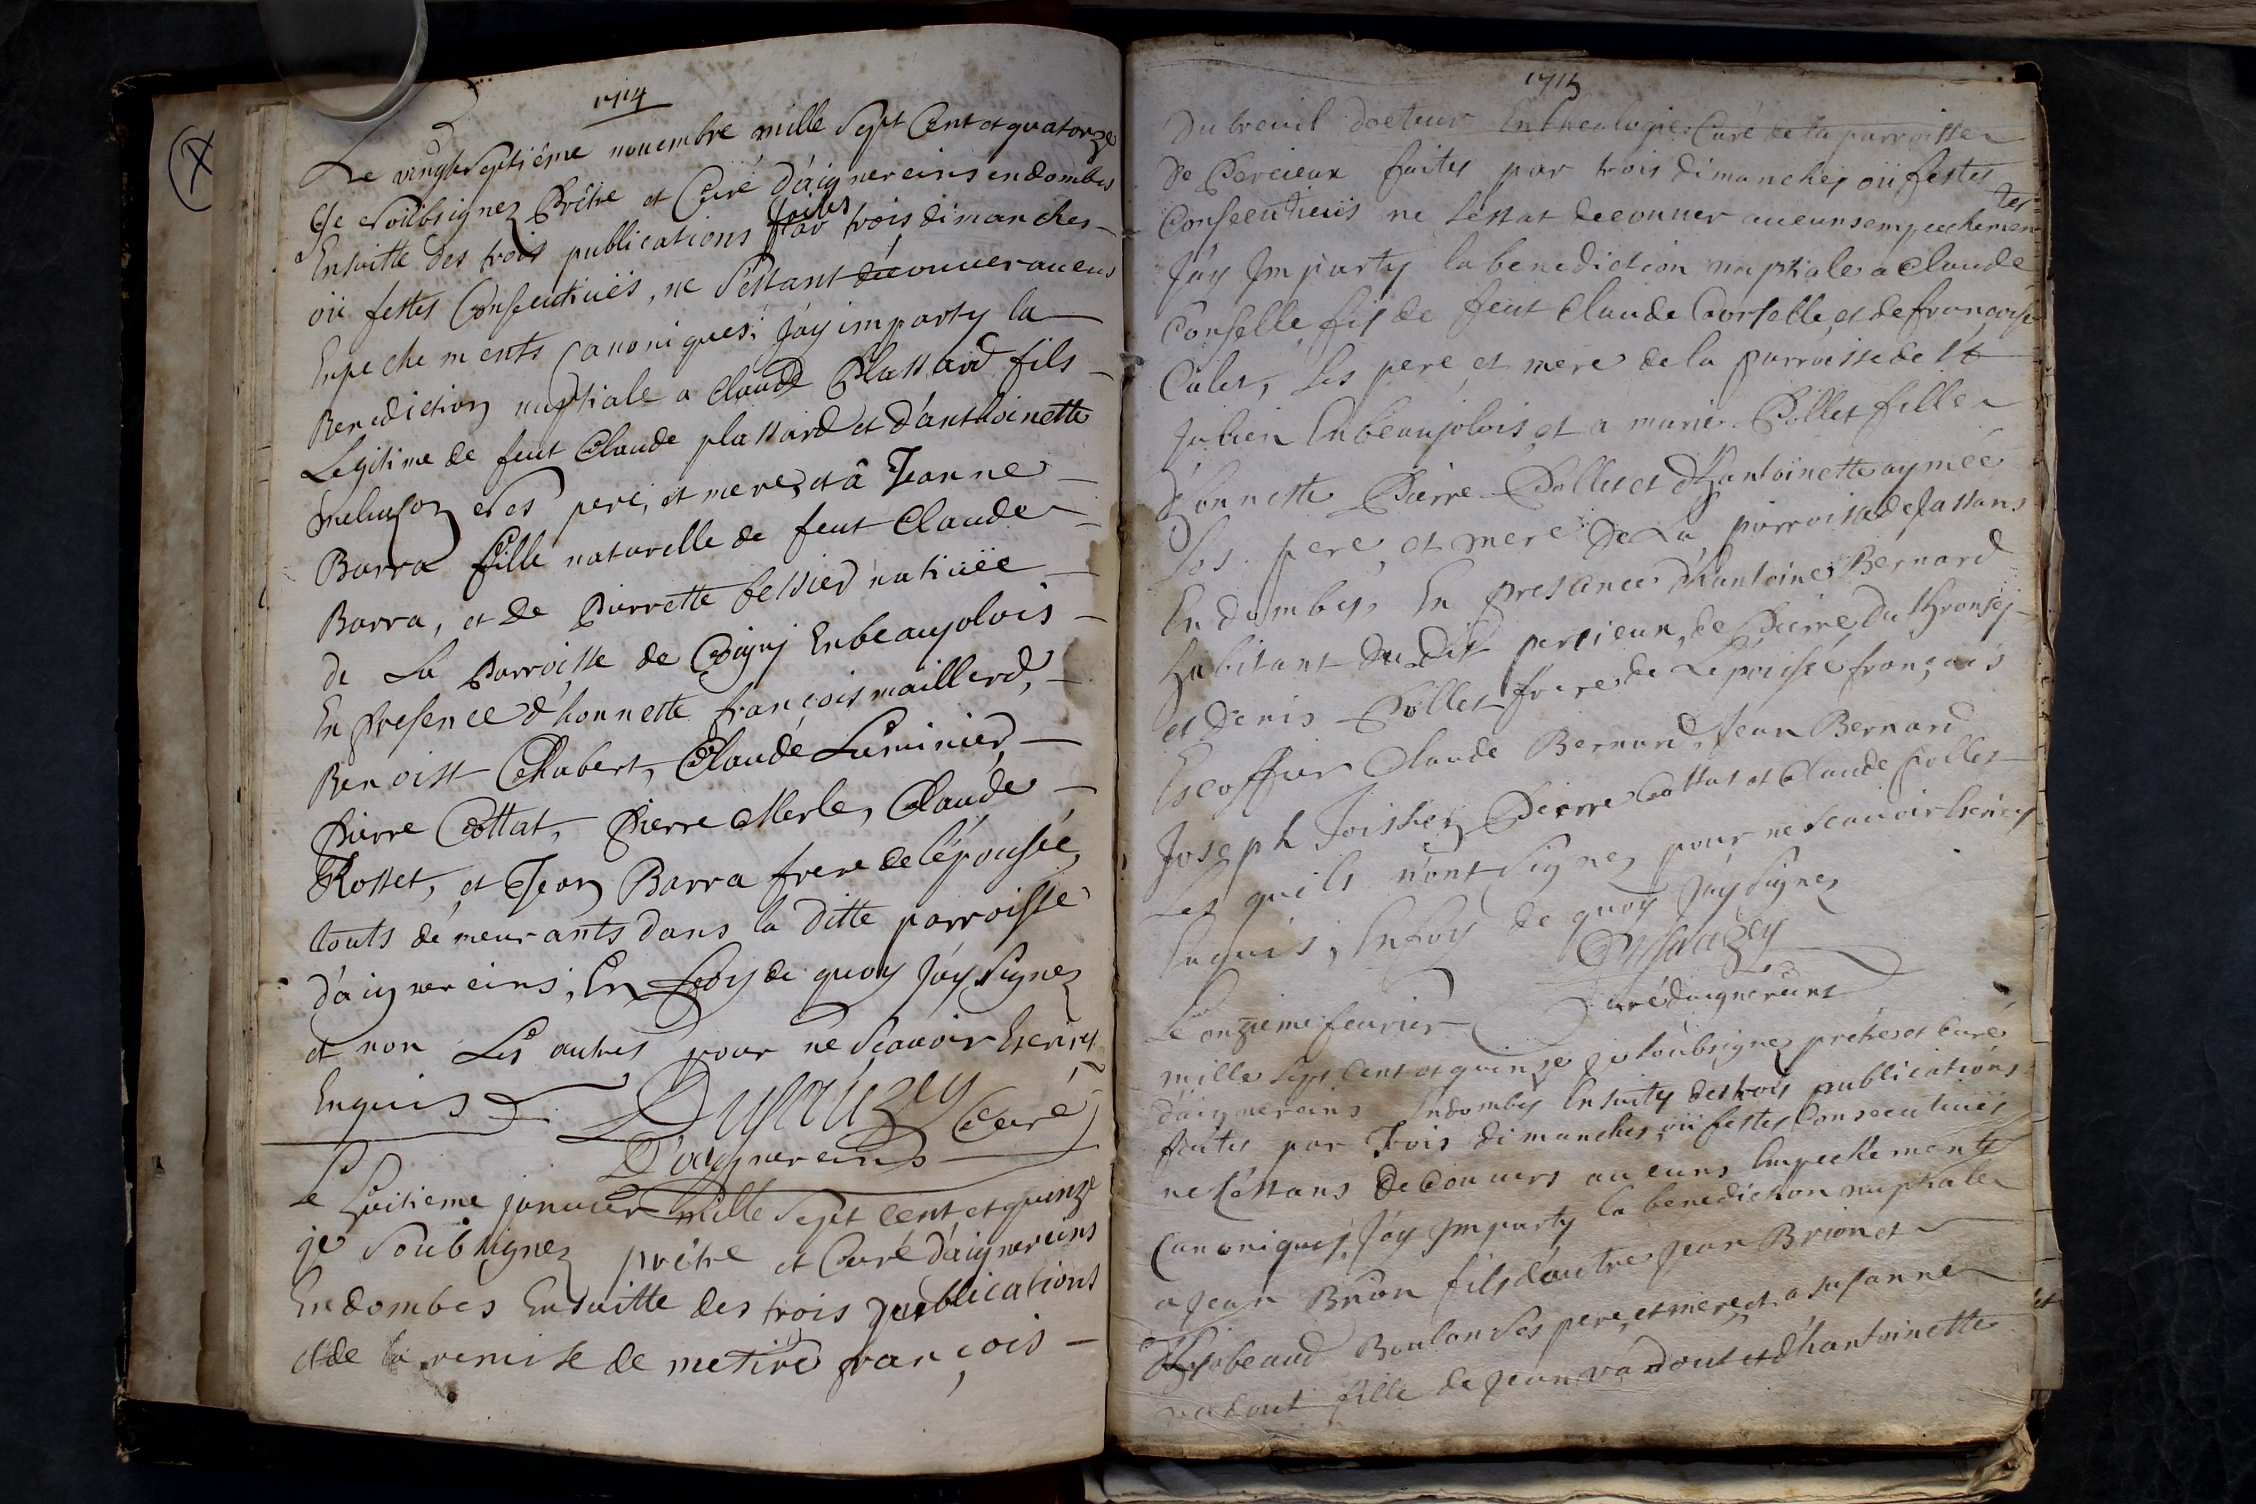 1714
Le vingt Septiéme nouembre mille Sept Cent et quatorze
Je Soübsignez Prêtre et Curé d'aignereins endombes
Ensuitte des trois publications faites par trois dimanches
oü festes Consecutiues, ne S'estant découuer aucus
Enpechements Canoniques; J'ay imparty la
Benediction nuptiale a claude Plassard fils
Legitime de feut Claude plassard et d'anthoinette
Ses pere, et mere, et â Jeanne
Barra fille naturelle de feut Claude
Barra, et de Pierrette natiuëe
de La Parroisse de Enbeaujolois
En presence d'honnette françois maillerd,
Benoist Chabert, Claude Luminier,
Pierre Cottat, Pierre Merle, Claude
Rosset, et Jean Barra frere de lépousée,
touts demeurants dans la ditte parroisse
d'aignereins, En Foy de quoy J'ay Signez
et non Les autres pour ne Scauoir Escrire
Enquis Curé
D'aignereins
Le huitieme januier mille Sept cent et quinze
je Soubsignez prêtre et Curé d'aignereins
Endombes Ensuitte des trois publications
et de la remise de metire françois
1715
Dubreuil docteur Entheologie Curé de la parroisse
de Percieux faites par trois dimanches oü festes
Consecutieus ne S'éstat decouuer aucunsempechemen
tes
J'ay Imparty la benediction nuptiale a Claude
Corselle fils de feut Claude Corselle et de françoise
Culet, Ses pere et mere de la parroisse de St
Julien Enbeaujolois, et a marie Pollet fille
d'honnette Pierre Pollet et d'hantoinette aymée
Ses pere, et mere de La parroisse de fassans
En dombes, En presance d'hantoine Bernard
habitant du dit percieux, de Pierre Du
et Denis Pollet frere de Lépousée françois
Escoffier Claude Bernard, Jean Bernard
Joseph Pierre Cottat et Claude Pollet
Les quels n'ont Signez pour ne Scauoir Escrire
Enquis, En foy de quoy J'ay Signez
Curé d'aignereins
Le onzieme feurier
mille Sept Cent et quinze je Soubsignez prétre et Curé
d'aignereins Endombes Ensuite des trois publications
faites par Trois dimanches oü festes Consecutiues
ne S'estans decouuers aucuns Empechements
Canoniques, J'ay Imparty la benediction nuptiale
a Jean Brion fils d'autre Jean Brion et
Boulon Ses pere, et mere, et a Susanne
vadout fille de Jean vadout et d'hantoinette